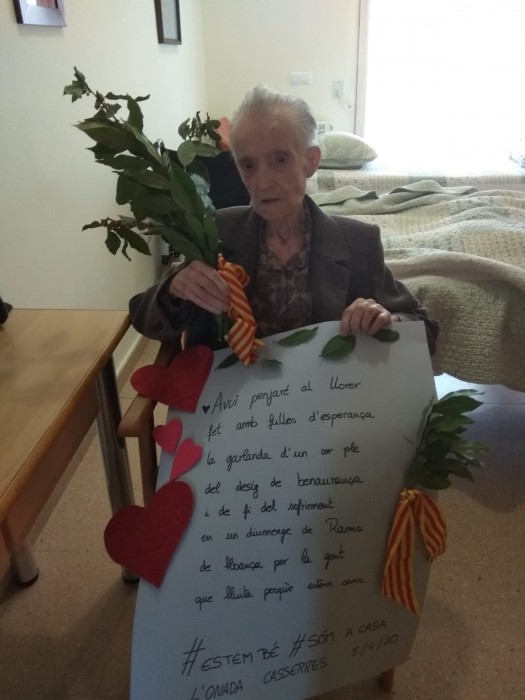 ♥Avui penjaré al llorer
fet amb fulles d'esperança
la garlanda d'un cor ple
del desig de benaurança
i de fi del sofriment
en un diumenge de Rams
de lloança per la gent
que lluita perquè estem sans
#ESTEM BÉ #SÓM A CASA
L'ONADA CASSERRES 5/4/20